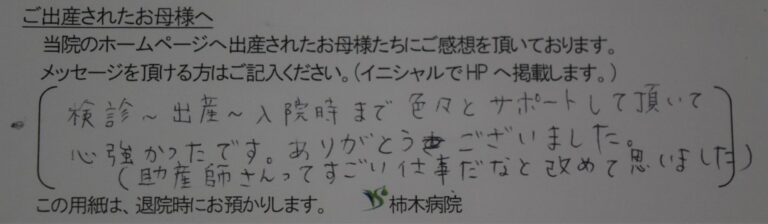 ご出産されたお母様へ
当院のホームページへ出産されたお母様たちにご感想を頂いております。
メッセージを頂ける方はご記入ください。(イニシャルでHPへ掲載します。)
検診~出産~入院時まで色々とサポートして頂いて
心強かったです。ありがとうございました。
(助産師さんってすごい仕事だなと改めて思いました)
この用紙は、退院時にお預かりします。 柿木病院